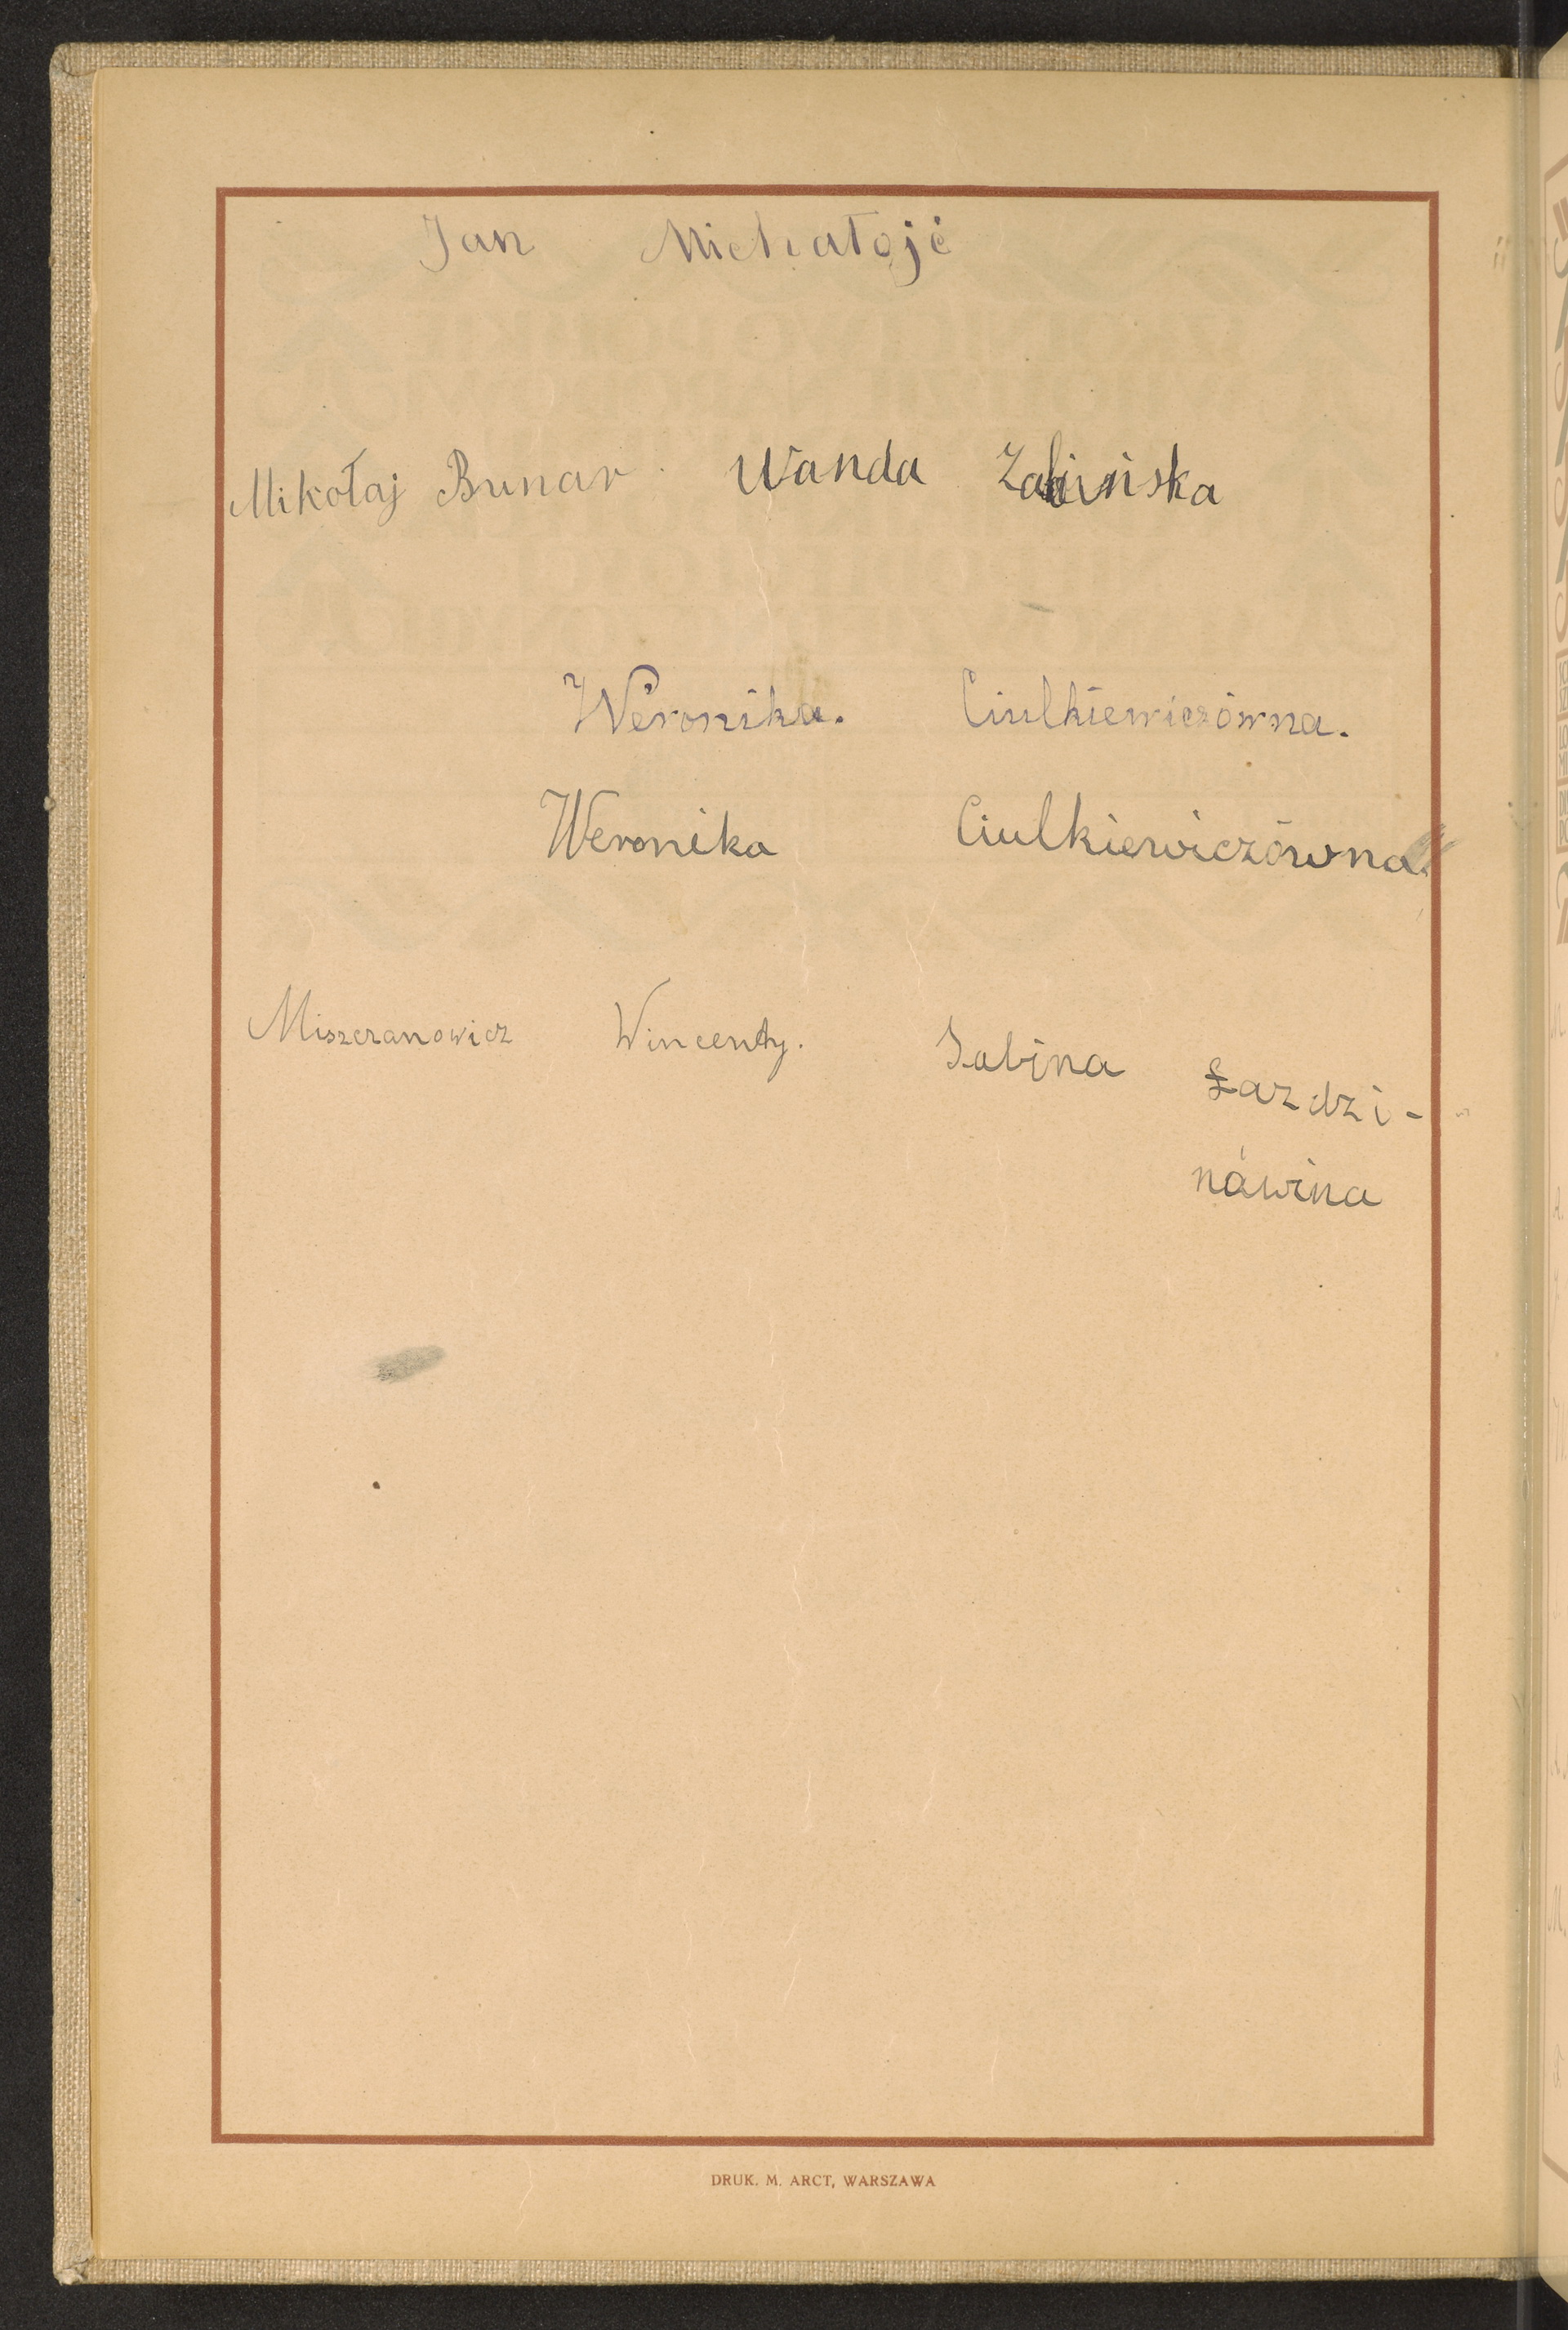 Jan Michałojć
Mikołaj Bunar. Wanda Zalivińska
Weronika. Ciulkiewiczówna.
Weronika Ciulkiewiczówna.
Miszczanowicz Wincenty. Sabina Łazdzi-
nówina
DRUK. M. ARCT, WARSZAWA